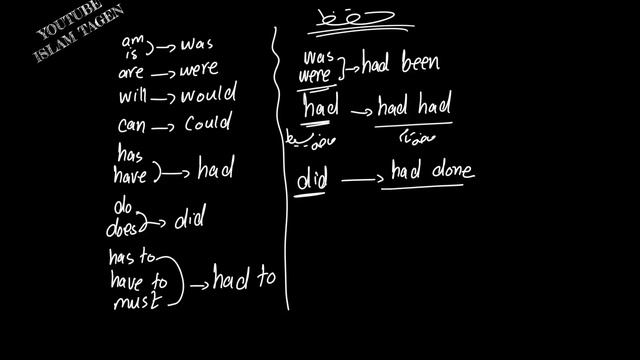 YOUTUBE
ISLAM TAGEN
am
is → was
are → were
will → would
can → Could
has
have → had
do
does → did
has to
have to
must → had to
حفظ
was
were → had been
had → had had
ماضى بسيط
ماضى تام
did → had done